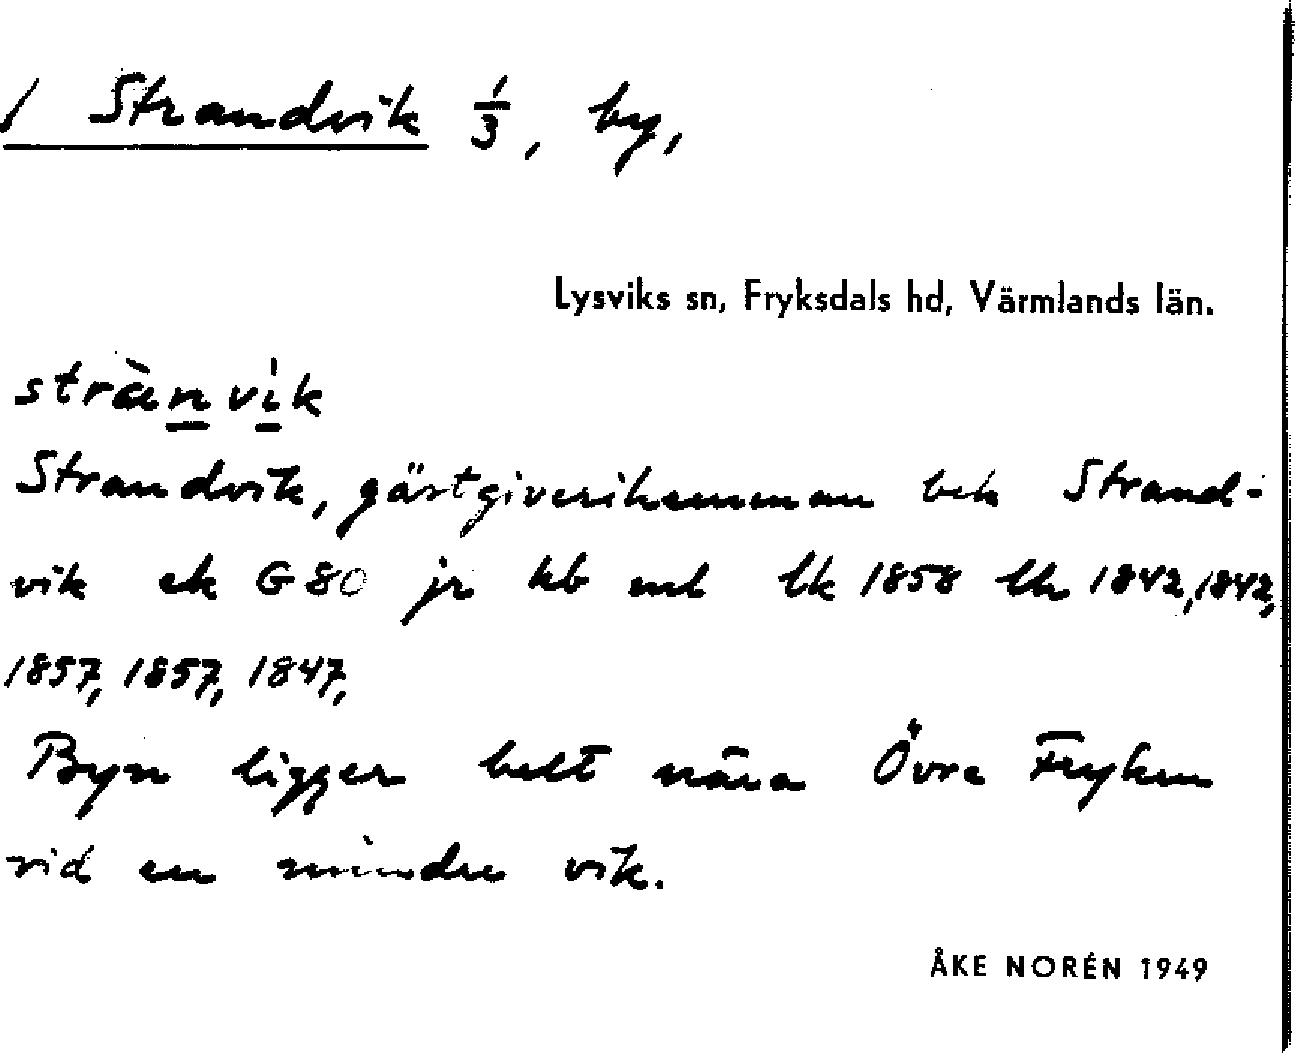 / Strandvik 1/3, by,
Lysviks sn, Fryksdals hd, Värmlands län.
strànvik
Strandvik, gästgiverihemman beh Strand-
vik ek G 80 jr hb ml lk 1858 lh 1842, 1842,
1857, 1857, 1847,
Byn ligger helt nära Övre Fryken
vid en mindre vik.
ÅKE NORÉN 1949